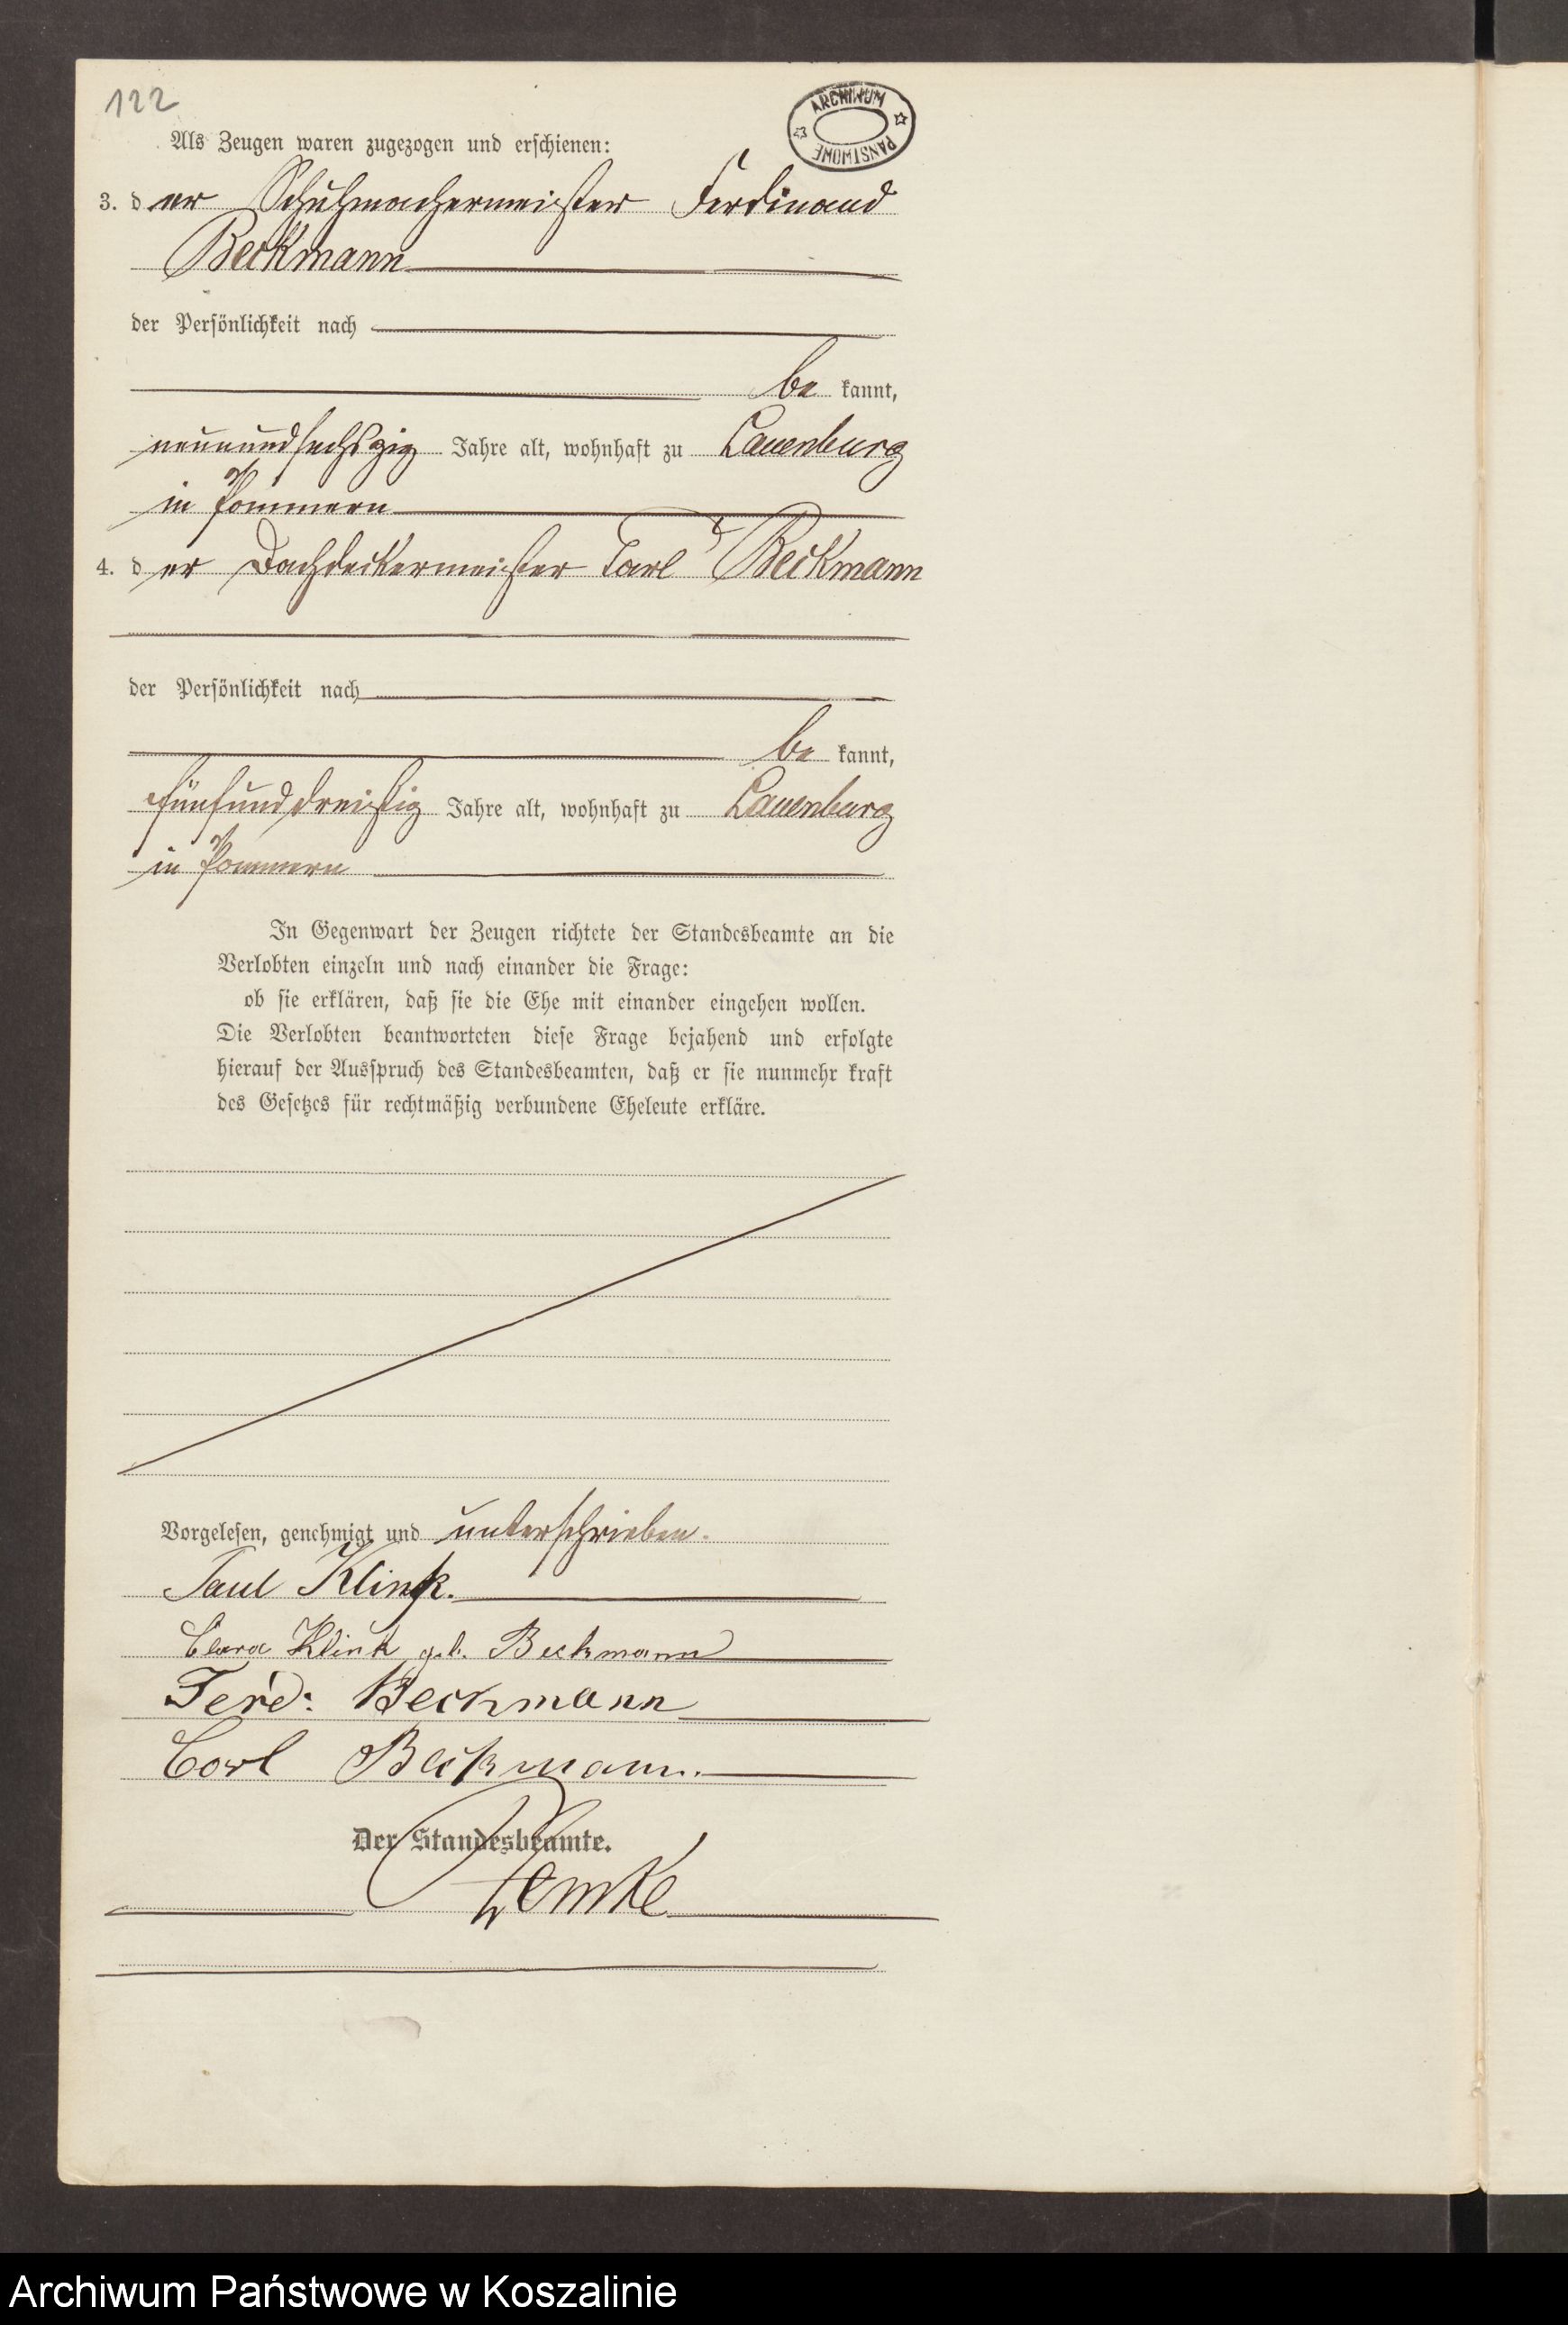 122
ARCHIWUM
PAŃSTWOWE
Als Zeugen waren zugezogen und erschienen:
3. der Schuhmachermeister Ferdinand
Beckmann
der Persönlichkeit nach
be kannt,
neunundsechszig Jahre alt, wohnhaft zu Lauenburg
in Pommern
4. der Dachdeckermeister Carl Beckmann
der Persönlichkeit nach
be kannt,
fünfunddreißig Jahre alt, wohnhaft zu Lauenburg
in Pommern
In Gegenwart der Zeugen richtete der Standesbeamte an die
Verlobten einzeln und nach einander die Frage:
ob sie erklären, daß sie die Ehe mit einander eingehen wollen.
Die Verlobten beantworteten diese Frage bejahend und erfolgte
hierauf der Ausspruch des Standesbeamten, daß er sie nunmehr kraft
des Gesetzes für rechtmäßig verbundene Eheleute erkläre.
Vorgelesen, genehmigt und unterschrieben.
Paul Klink.
Clara Klink geb. Beckmann
Ferd: Beckmann
Carl Beckmann.
Der Standesbeamte.
Zemke
Archiwum Państwowe w Koszalinie